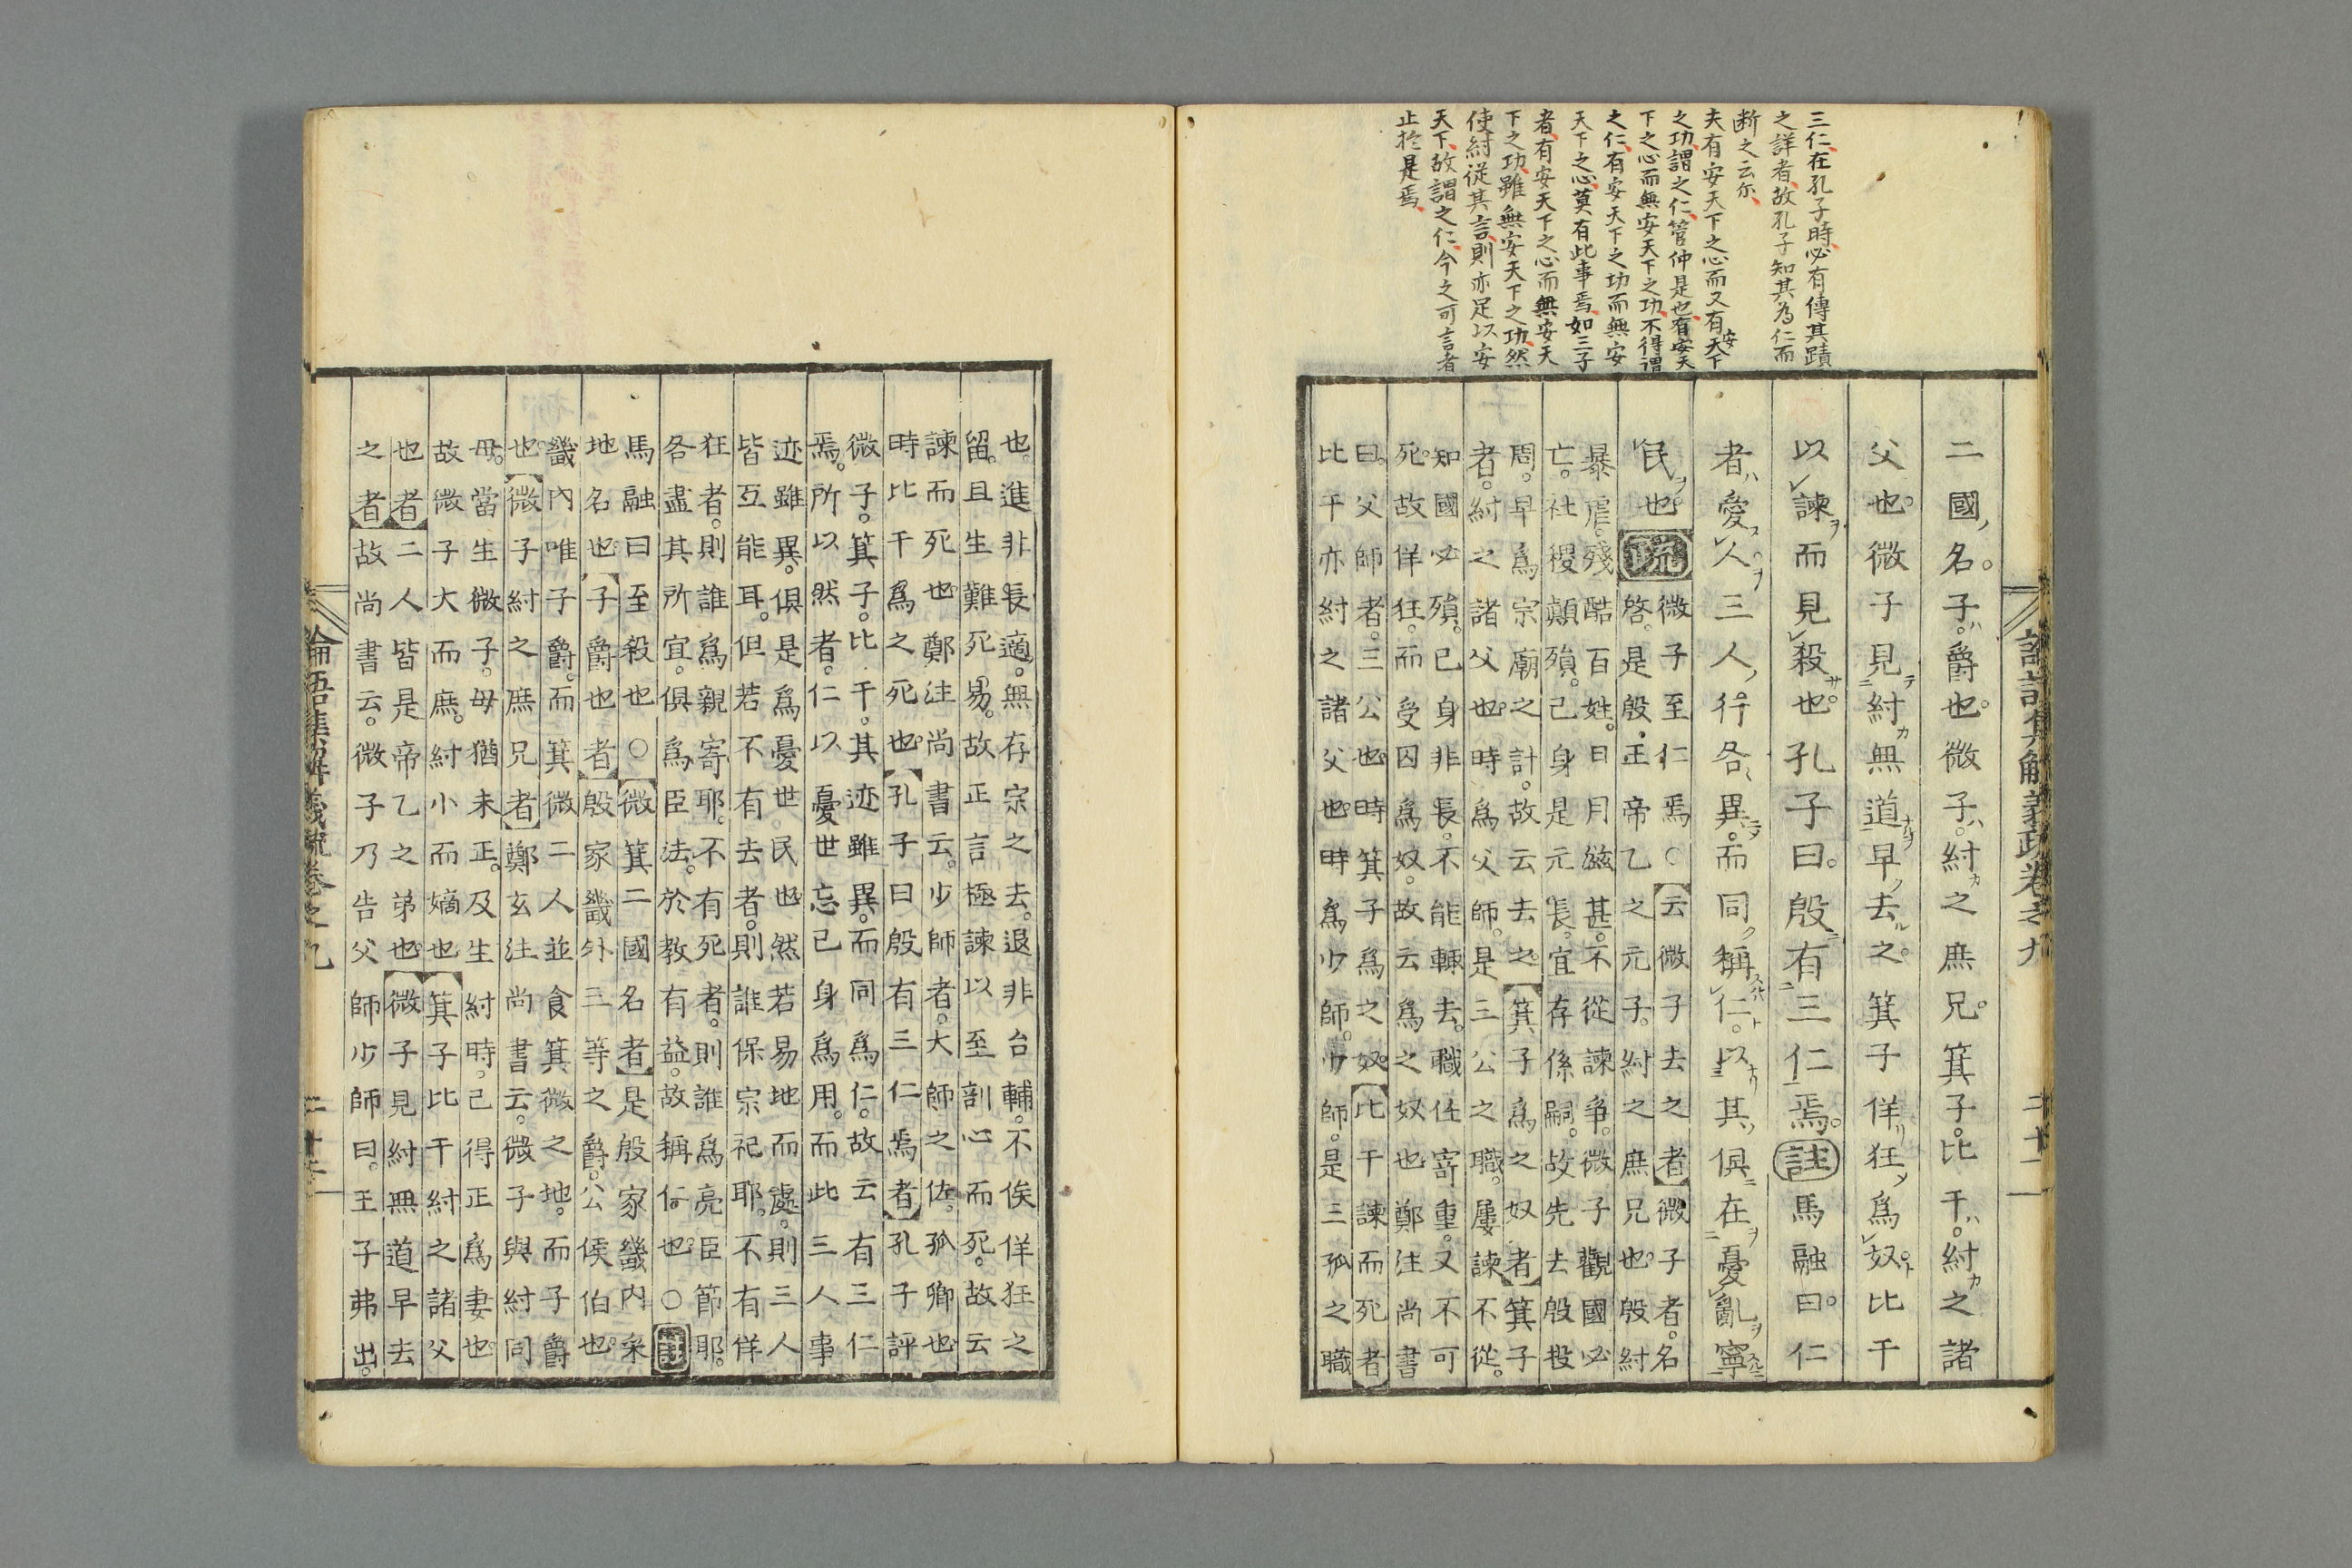 三仁在孔子時必有傳其蹟
之詳者故孔子知其為仁而
断之云尓
夫有安天下之心而又有安天下
之功謂之仁管仲是也有安天
下之心而無安天下之功不得謂
之仁有安天下之功而無安
天下之心莫有此事焉如三子
者有安天下之心而無安天
下之功雖無安天下之功然
使紂從其言則亦足以安
天下故謂之仁今之可言者
止於是焉
二國ノ名。子ハ。爵也。微子ハ。紂カ之庶兄。箕子。比干ハ。紂カ之諸
父也。微子見テ二紂カ無道ナルヲ一早ク去ル之。箕子佯リ狂ノ爲レ奴ト。比干
以レ諫ヲ而見レ殺サ也。孔子曰。殷ニ有二三仁一焉。註馬融曰。仁
者ハ愛スレ人ヲ。三人ノ行各〻異ニメ。而同ク稱スルハレ仁ト。以ナリ三其ノ俱ニ在ヲ二憂レ亂ヲ寧スルニ一レ
民ヲ也。疏 微子至仁焉○云微子去之者微子者。名
啓。是殷王帝乙之元子。紂之庶兄也。殷紂
暴虐。殘酷百姓。日月滋甚。不從諫爭。微子觀國必
亡。社稷顛殞。己身是元長。宜存係嗣。故先去殷投
周。早爲宗廟之計。故云去之。箕子爲之奴者箕子
者。紂之諸父也。時爲父師。是三公之職。屢諫不從。
知國必殞。己身非長。不能輙去。職任寄重。又不可
死。故佯狂。而受囚爲奴。故云爲之奴也鄭注尚書
曰。父師者。三公也時箕子爲之奴。比干諫而死者
比干亦紂之諸父也。時爲少師。少師。是三孤之職
論語集解義疏卷之九 二十二
也。進非長適。無存宗之去。退非台輔。不俟佯狂之
留。且生難死易。故正言極諫以至剖心而死。故云
諫而死也。鄭注尚書云。少師者。大師之佐。孤卿也
時比干爲之死也。孔子曰殷有三仁焉者孔子評
微子。箕子。比干。其迹雖異。而同爲仁。故云有三仁
焉。所以然者。仁以憂世忘己身爲用。而此三人事
迹雖異。俱是爲憂世。民也然若易地而處。則三人
皆互能耳。但若不有去者。則誰保宗祀耶。不有佯
狂者。則誰爲親寄耶。不有死者。則誰爲亮臣節耶。
各盡其所宜。俱爲臣法。於教有益。故稱仁也。○註
馬融曰至殺也 ○微箕二國名者是殷家畿內采
地名也。子爵也者殷家畿外三等之爵。公侯伯也。
畿內唯子爵。而箕微二人並食箕微之地。而子爵
也。微子紂之庶兄者鄭玄注尚書云。微子與紂同
母。當生微子。母猶未正。及生紂時。己得正爲妻也。
故微子大而庶。紂小而嫡也箕子比干紂之諸父
也者二人皆是帝乙之弟也微子見紂無道早去
之者故尚書云。微子乃告父師少師曰。王子弗出。
論語集解義疏卷之九 二十二